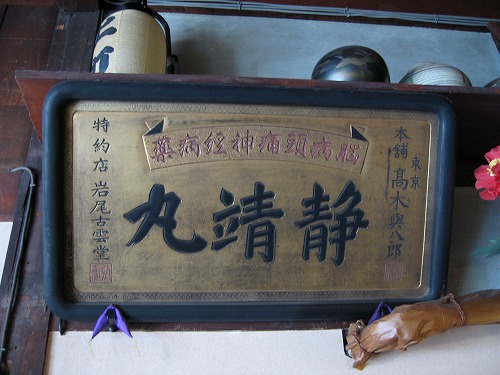 東京
本舗 高木與八郎
脳病頭痛神経病薬
静靖丸
特約店 岩尾古雲堂